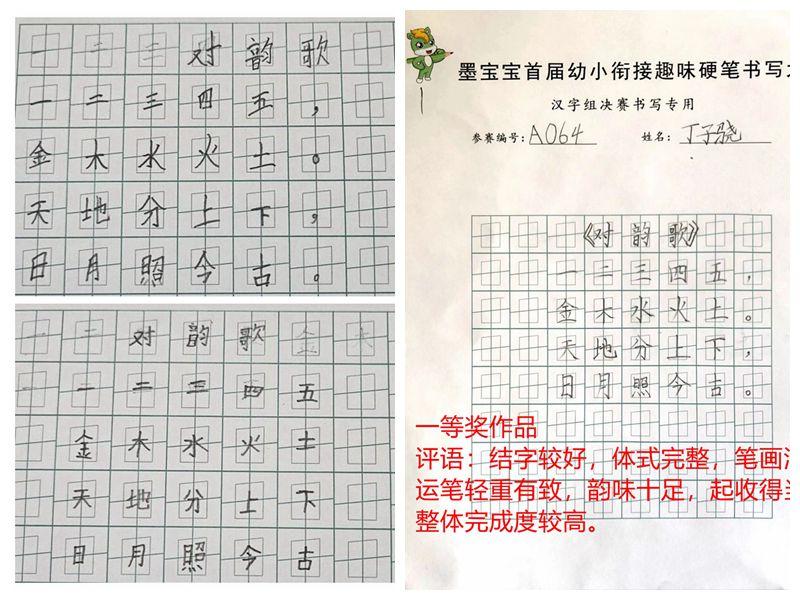 一 二 三 对 韵 歌
一 二 三 四 五 ，
金 木 水 火 土 。
天 地 分 上 下 ，
日 月 照 今 古 。
一 二 对 韵 歌 金 木
一 一 二 三 四 五
金 木 水 火 土
天 地 分 上 下
日 月 照 今 古
墨宝宝首届幼小衔接趣味硬笔书写
汉字组决赛书写专用
参赛编号：A064 姓名：丁子骁
《对韵歌》
一二三四五，
金木水火土。
天地分上下，
日月照今古。
一等奖作品
评语：结字较好，体式完整，笔画
运笔轻重有致，韵味十足，起收得
整体完成度较高。